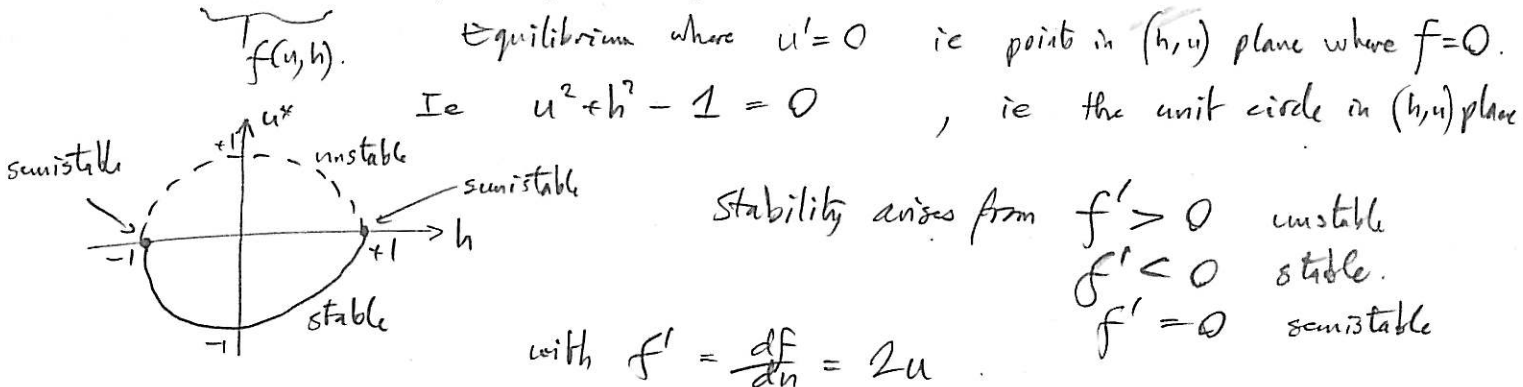 f(u,h).
Equilibrium where u'=0 ie points in (h,u) plane where f=0.
Ie u²+h²-1=0, ie the unit circle in (h,u) plane
u*
+1
unstable
semistable
semistable
h
-1
+1
stable
-1
Stability arises from f'>0 unstable
f'<0 stable.
f'=0 semistable
with f' = df/du = 2u.